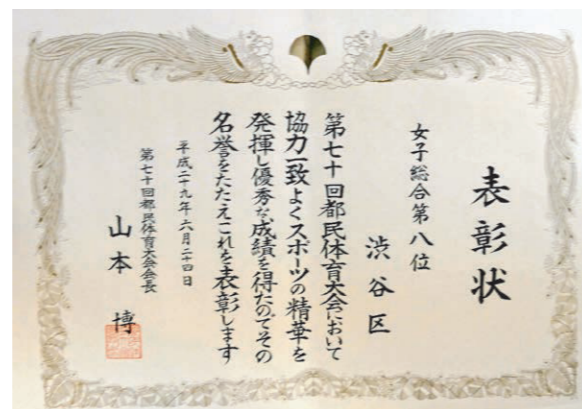 表彰状
女子総合第八位
渋谷区
第七十回都民体育大会において
協力一致よくスポーツの精華を
発揮し優秀な成績を得たのでその
名誉をたたえこれを表彰します
平成二十九年六月二十四日
第七十回都民体育大会会長
山本 博